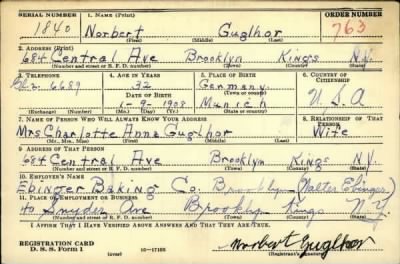 SERIAL NUMBER 1. NAME (Print) ORDER NUMBER
1840 Norbert Guglhor 763
(First) (Middle) (Last)
2. ADDRESS (Print)
684 Central Ave Brooklyn Kings N.Y.
(Number and street or R. F. D. number) (Town) (County) (State)
3. TELEPHONE 4. AGE IN YEARS 5. PLACE OF BIRTH 6. COUNTRY OF CITIZENSHIP
6689 32 Germany
DATE OF BIRTH (Town or county)
1-9-1908 Munich U.S.A
(Exchange) (Number) (Mo.) (Day) (Yr.) (State or country)
7. NAME OF PERSON WHO WILL ALWAYS KNOW YOUR ADDRESS 8. RELATIONSHIP OF THAT PERSON
Mrs Charlotte Anna Guglhor Wife
(Mr., Mrs., Miss) (First) (Middle) (Last)
9. ADDRESS OF THAT PERSON
684 Central Ave Brooklyn Kings N.Y.
(Number and street or R. F. D. number) (Town) (County) (State)
10. EMPLOYER'S NAME
Ebinger Baking Co. Brooklyn (Walter Ebinger)
11. PLACE OF EMPLOYMENT OR BUSINESS
Snyder Ave Brooklyn Kings N.Y
(Number and street or R. F. D. number) (Town) (County) (State)
I AFFIRM THAT I HAVE VERIFIED ABOVE ANSWERS AND THAT THEY ARE TRUE.
REGISTRATION CARD
D. S. S. Form 1 (over) 16-17105 Norbert Guglhor
(Registrant's signature)